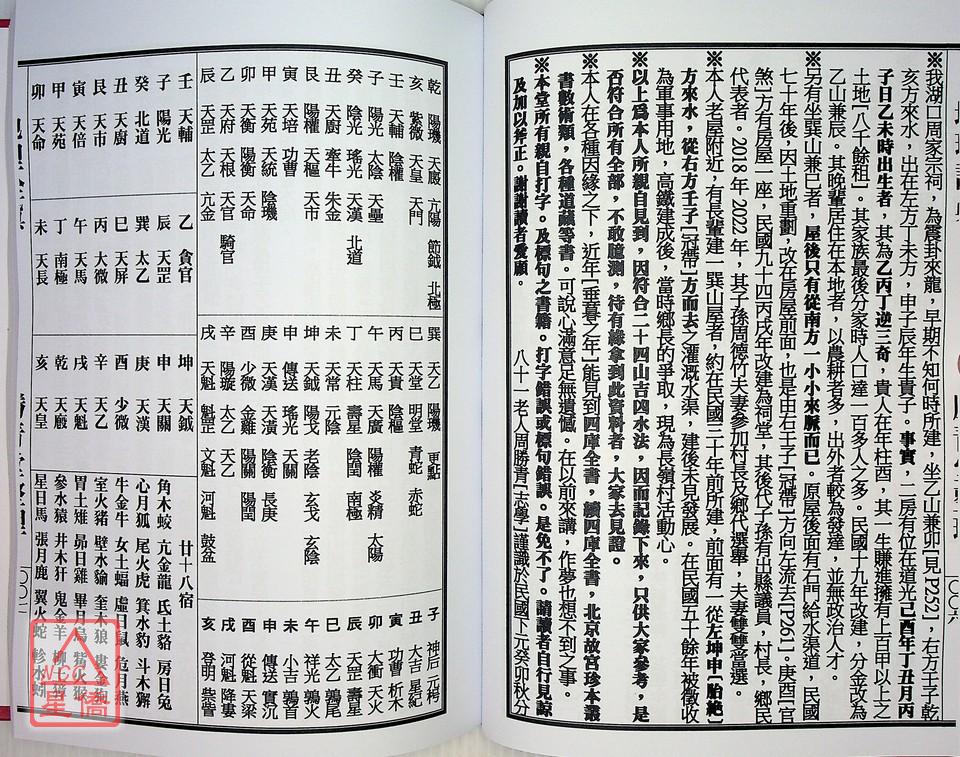 ※我湖口周家宗祠，為震卦來龍，早期不知何時所建，坐乙山兼卯[見P252]，右方壬子乾
亥方來水，出在左方丁未方，申子辰年生貴子。事實，二房有位在道光己酉年丁丑月丙
子日乙未時出生者，其為乙丙丁逆三奇，貴人在年柱酉，其一生賺進擁有上百甲以上之
土地[八千餘租]。其家族最後分家時人口達一百多人之多。民國十九年改建，分金改為
乙山兼辰。其晚輩居住在本地者，以農耕者多，出外者較為發達，並無政治人才。
※另有坐巽山兼巳者，屋後只有從南方一小小來脈而已。原屋後面有石門給水渠道，民國
七十年後，因土地重劃，改在房屋前面，也是由右壬子[冠帶]方向左流去[P261]。庚酉[官
煞]方有房屋一座，民國九十四丙戌年改建為祠堂，其後代子孫有出縣議員，村長，鄉民
代表者。2018年2022年，其子孫周德竹夫妻參加村長及鄉代選舉，夫妻雙雙當選。
※本人老屋附近，有長輩建一巽山屋者，約在民國三十年前所建，前面有一從左坤申[胎絕]
方來水，從右方壬子[冠帶]方而去之灌溉水渠，建後未見發展。在民國五十餘年被徵收
為軍事用地，高鐵建成後，當時鄉長的爭取，現為長嶺村活動心。
※以上為本人所親自見到，因符合二十四山吉凶水法，因而記錄下來，只供大家參考，是
否符合所有全部，不敢臆測，待有緣拿到此資料者，大家去見證。
※本人在各種因緣之下，近年[垂暮之年]能見到四庫全書，續四庫全書，北京故宮珍本叢
書數術類，各種道藏等書。可說心滿意足無遺憾。在以前來講，作夢也想不到之事。
※本堂所有親自打字。及標句之書籍。打字錯誤或標句錯誤。是免不了。請讀者自行見諒
及加以斧正。謝謝讀者愛顧。
八十一老人周勝青[志學]謹識於民國下元癸卯秋分
乾 陽璣 天廄 亢陽 節鉞 北極
亥 紫微 天皇 天門
壬 天輔 陰權
子 陽光 太陰 天壘
癸 陰光 瑤光 天漢 北道
丑 天廚 牽牛 朱金
艮 陽樞 天樞 天市
寅 天培 功曹
甲 天苑 天統 陰璣
卯 陽衡 陽衡 天命
乙 天府 天根 天官 騎官
辰 天罡 太乙 亢金
巽 天乙 陽璣 更點
巳 天堂 明堂 青蛇 赤蛇
丙 天貴 陰樞
午 天馬 天廣 陽權 炎精 太陽
丁 天柱 壽星 陰闓
未 天常 元陰
坤 天鉞 陽戈 老陰 玄戈 玄陰
申 傳送 瑤光 天關
庚 天漢 天潢 陰衡 長庚
酉 少微 金雞 陽闓
辛 陽璇 太乙 天乙
戌 天魁 魁罡 文魁 河魁 鼓盆
子 神后 元枵
丑 大吉 星紀
寅 功曹 析木
卯 大衝 天火
辰 天罡 壽星
巳 太乙 鶉尾
午 祥光 鶉火
未 小吉 鶉首
申 傳送 實沉
酉 從魁 天梁
戌 河魁 降婁
亥 登明 娵訾
壬 天輔
子 陽光
癸 北道
丑 天廚
艮 天市
寅 天倍
甲 天苑
卯 天命
乙 貪官
辰 天罡
巽 太乙
巳 天屏
丙 太微
午 天馬
丁 南極
未 天長
坤 天鉞
申 天關
庚 天漢
酉 少微
辛 天乙
戌 天魁
乾 天廄
亥 天皇
廿十八宿
角木蛟 亢金龍 氐土貉 房日兔
心月狐 尾火虎 箕水豹 斗木獬
牛金牛 女土蝠 虛日鼠 危月燕
室火豬 壁水貐 奎木狼 婁金狗
胃土雉 昴日雞 畢月烏 觜火猴
參水猿 井木犴 鬼金羊 柳土獐
星日馬 張月鹿 翼火蛇 軫水蚓
WCC
星僑